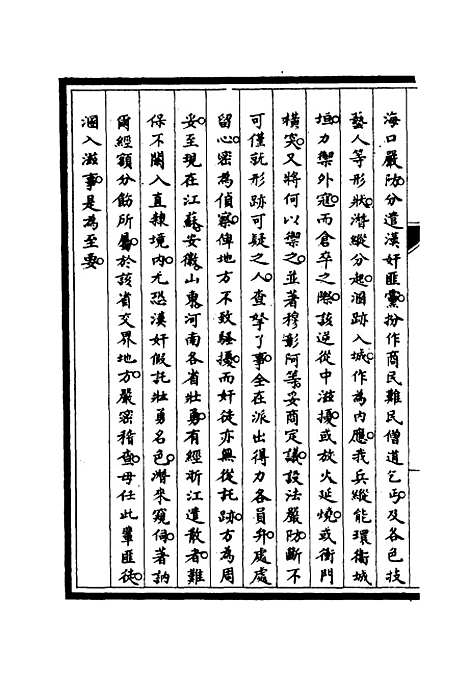 海口嚴防分遣漢奸匪黨扮作商民難民僧道乞丐及各色技
藝人等形狀潛縱分起溷跡入城作為內應我兵縱能環衛城
垣力禦外寇而倉卒之際該逆從中滋擾或放火延燒或衝門
橫突又將何以禦之並著穆彰阿等妥商定議設法嚴防斷不
可僅就形跡可疑之人查拏了事全在派出得力各員弁處處
留心密為偵察俾地方不致騷擾而奸徒亦無從託跡方為周
妥至現在江蘇安徽山東河南各省壯勇有經浙江遣散者難
保不闌入直隸境內尤恐漢奸假托壯勇名色潛來窺伺著訥
爾經額分飭所屬於該省交界地方嚴密稽查毋任此輩匪徒
溷入滋事是為至要